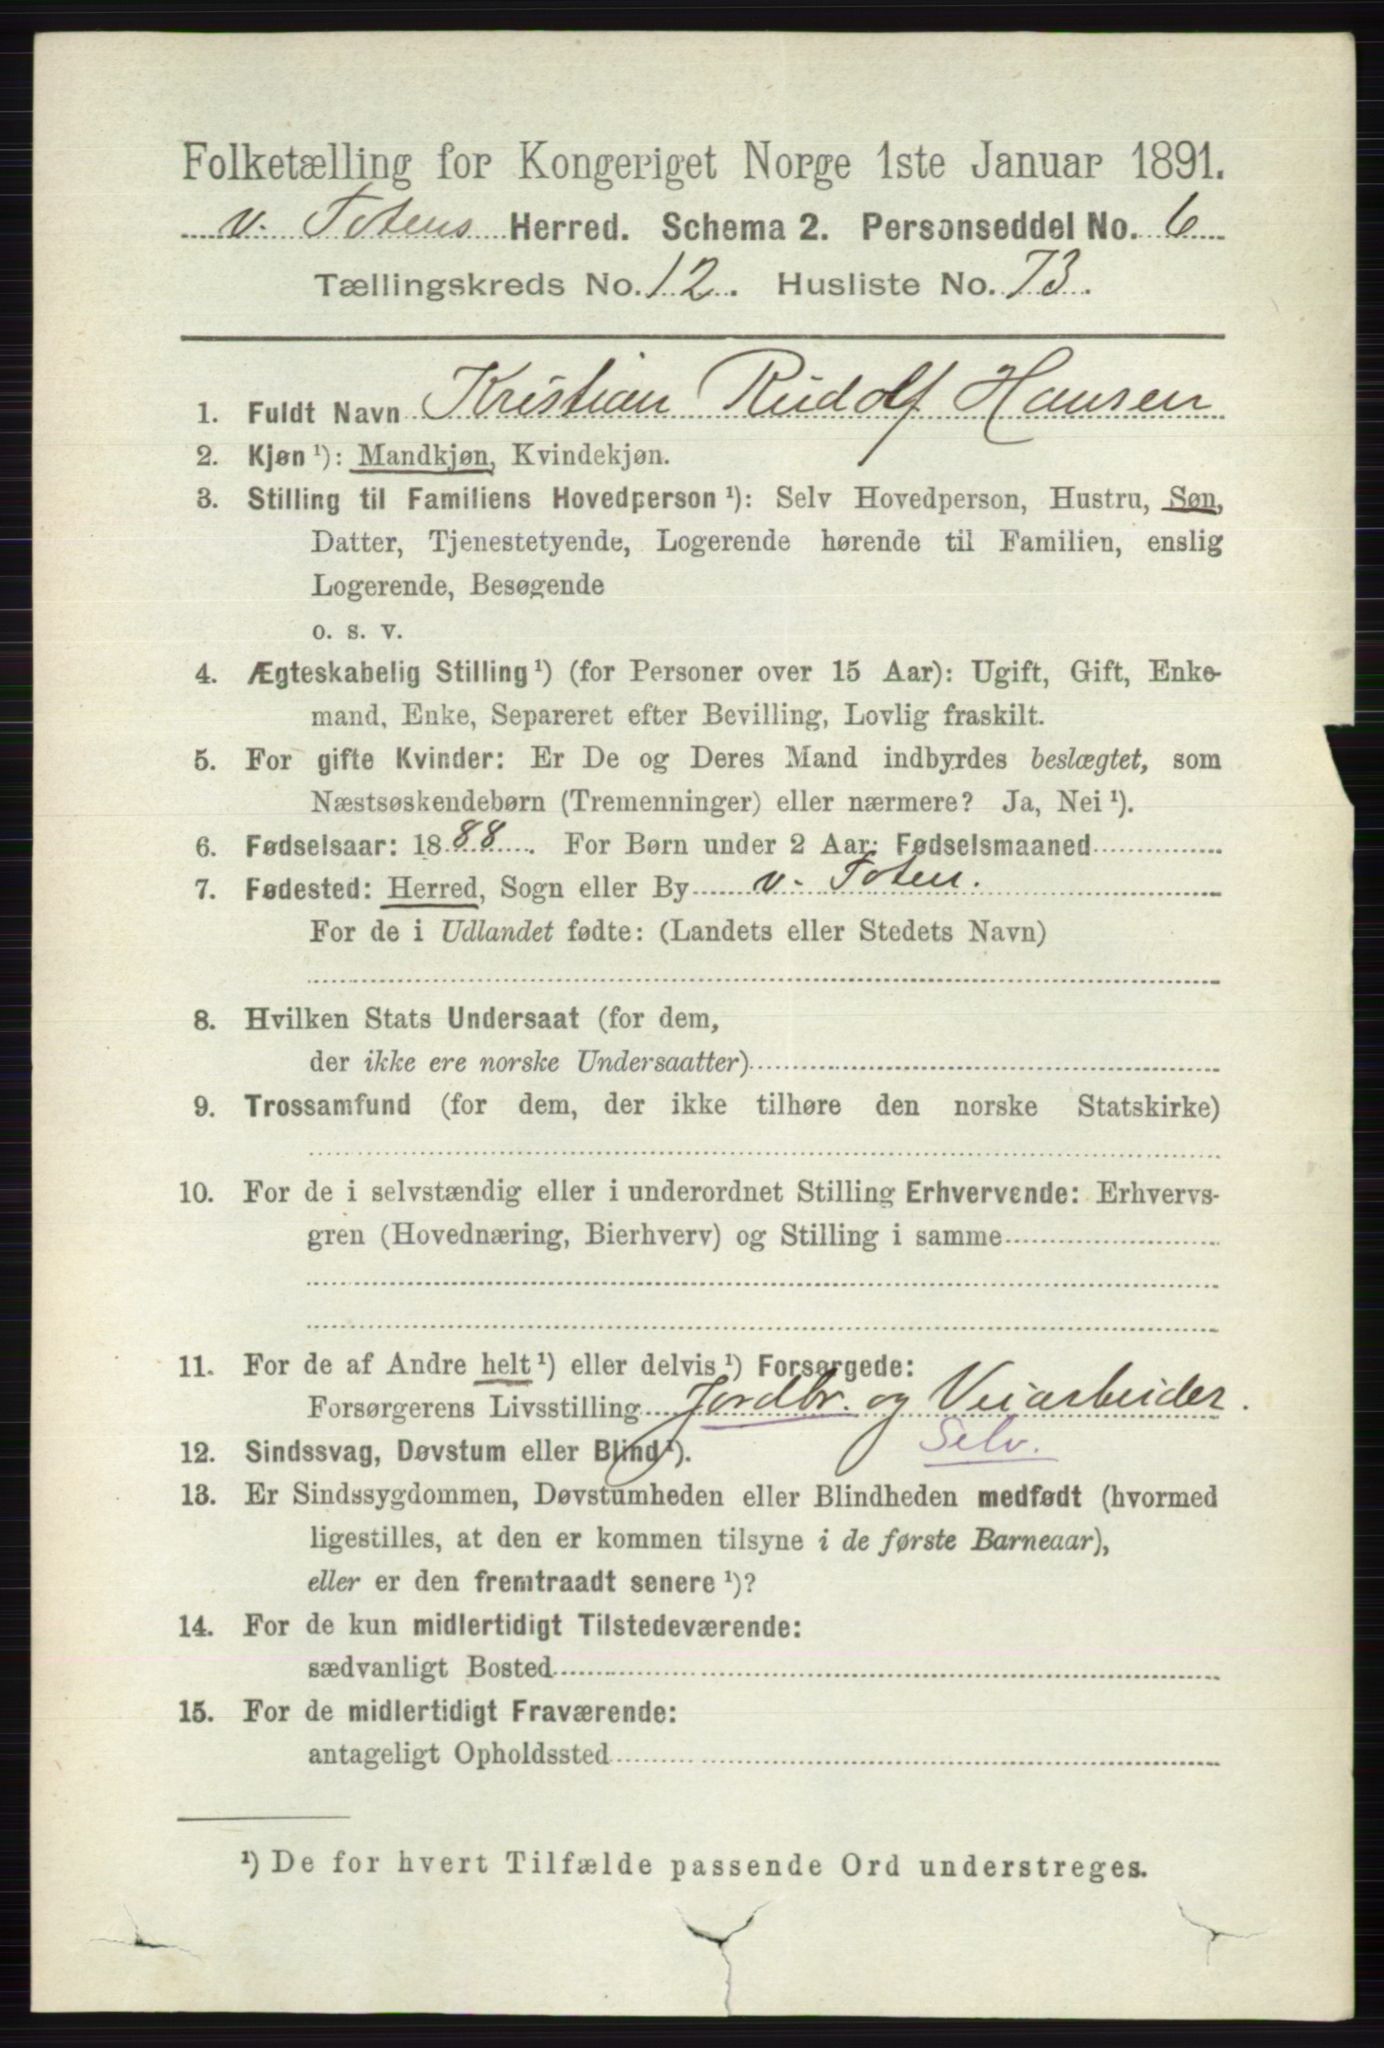 Folketælling for Kongeriget Norge 1ste Januar 1891.
v. Totens Herred. Schema 2. Personseddel No. 6
Tællingskreds No. 12. Husliste No. 73.
1. Fuldt Navn Kristian Rudolf Hansen
2. Kjøn ¹): Mandkjøn, Kvindekjøn.
3. Stilling til Familiens Hovedperson ¹): Selv Hovedperson, Hustru, Søn,
Datter, Tjenestetyende, Logerende hørende til Familien, enslig
Logerende, Besøgende
o. s. v.
4. Ægteskabelig Stilling ¹) (for Personer over 15 Aar): Ugift, Gift, Enke-
mand, Enke, Separeret efter Bevilling, Lovlig fraskilt.
5. For gifte Kvinder: Er De og Deres Mand indbyrdes beslægtet, som
Næstsøskendebørn (Tremenninger) eller nærmere? Ja, Nei ¹).
6. Fødselsaar: 1888. For Børn under 2 Aar: Fødselsmaaned
7. Fødested: Herred, Sogn eller By v. Toten.
For de i Udlandet fødte: (Landets eller Stedets Navn)
8. Hvilken Stats Undersaat (for dem,
der ikke ere norske Undersaatter)
9. Trossamfund (for dem, der ikke tilhøre den norske Statskirke)
10. For de i selvstændig eller i underordnet Stilling Erhvervende: Erhvervs-
gren (Hovednæring, Bierhverv) og Stilling i samme
11. For de af Andre helt ¹) eller delvis ¹) Forsørgede:
Forsørgerens Livsstilling Jordbr. og Veiarbeider.
Selv.
12. Sindssvag, Døvstum eller Blind ¹).
13. Er Sindssygdommen, Døvstumheden eller Blindheden medfødt (hvormed
ligestilles, at den er kommen tilsyne i de første Barneaar),
eller er den fremtraadt senere ¹)?
14. For de kun midlertidigt Tilstedeværende:
sædvanligt Bosted
15. For de midlertidigt Fraværende:
antageligt Opholdssted
¹) De for hvert Tilfælde passende Ord understreges.